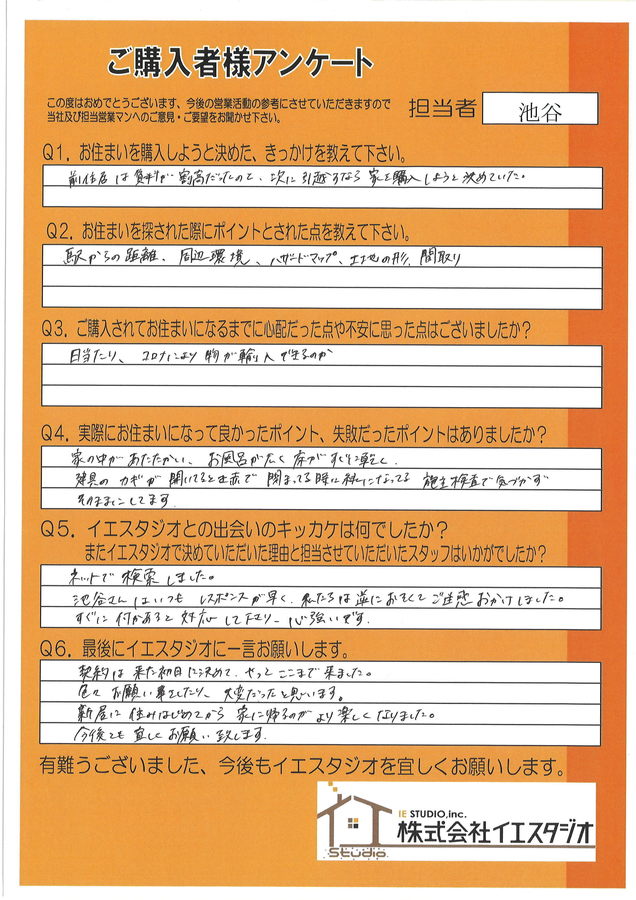 ご購入者様アンケート
この度はおめでとうございます、今後の営業活動の参考にさせていただきますので
当社及び担当営業マンへのご意見・ご要望をお聞かせ下さい。
担当者 池谷
Q1. お住まいを購入しようと決めた、きっかけを教えて下さい。
前住居は賃料が割高だったので、次に引越すなら家を購入しようと決めていた。
Q2. お住まいを探された際にポイントとされた点を教えて下さい。
駅からの距離、周辺環境、ハザードマップ、土地の形、間取り
Q3. ご購入されてお住まいになるまでに心配だった点や不安に思った点はございましたか？
日当たり、コロナにより物が輸入できるのか
Q4. 実際にお住まいになって良かったポイント、失敗だったポイントはありましたか？
家の中があたたかい、お風呂が広く床がすぐに乾く、
建具のカギが開いてると赤で閉まってる時に緑になってる 施主検査で気づかず
そのままにしてます。
Q5. イエスタジオとの出会いのキッカケは何でしたか？
またイエスタジオで決めていただいた理由と担当させていただいたスタッフはいかがでしたか？
ネットで検索しました。
池谷さんはいつもレスポンスが早く、私たちは逆におそくてご迷惑おかけしました。
すぐに何かあると対応して下さり心強いです。
Q6. 最後にイエスタジオに一言お願いします。
契約は来た初日に決めて、やっとここまで来ました。
色々お願い事をしたり、大変だったと思います。
新居に住みはじめてから家に帰るのがより楽しくなりました。
今後とも宜しくお願い致します。
有難うございました、今後もイエスタジオを宜しくお願いします。
IE STUDIO,inc.
株式会社イエスタジオ
Studio